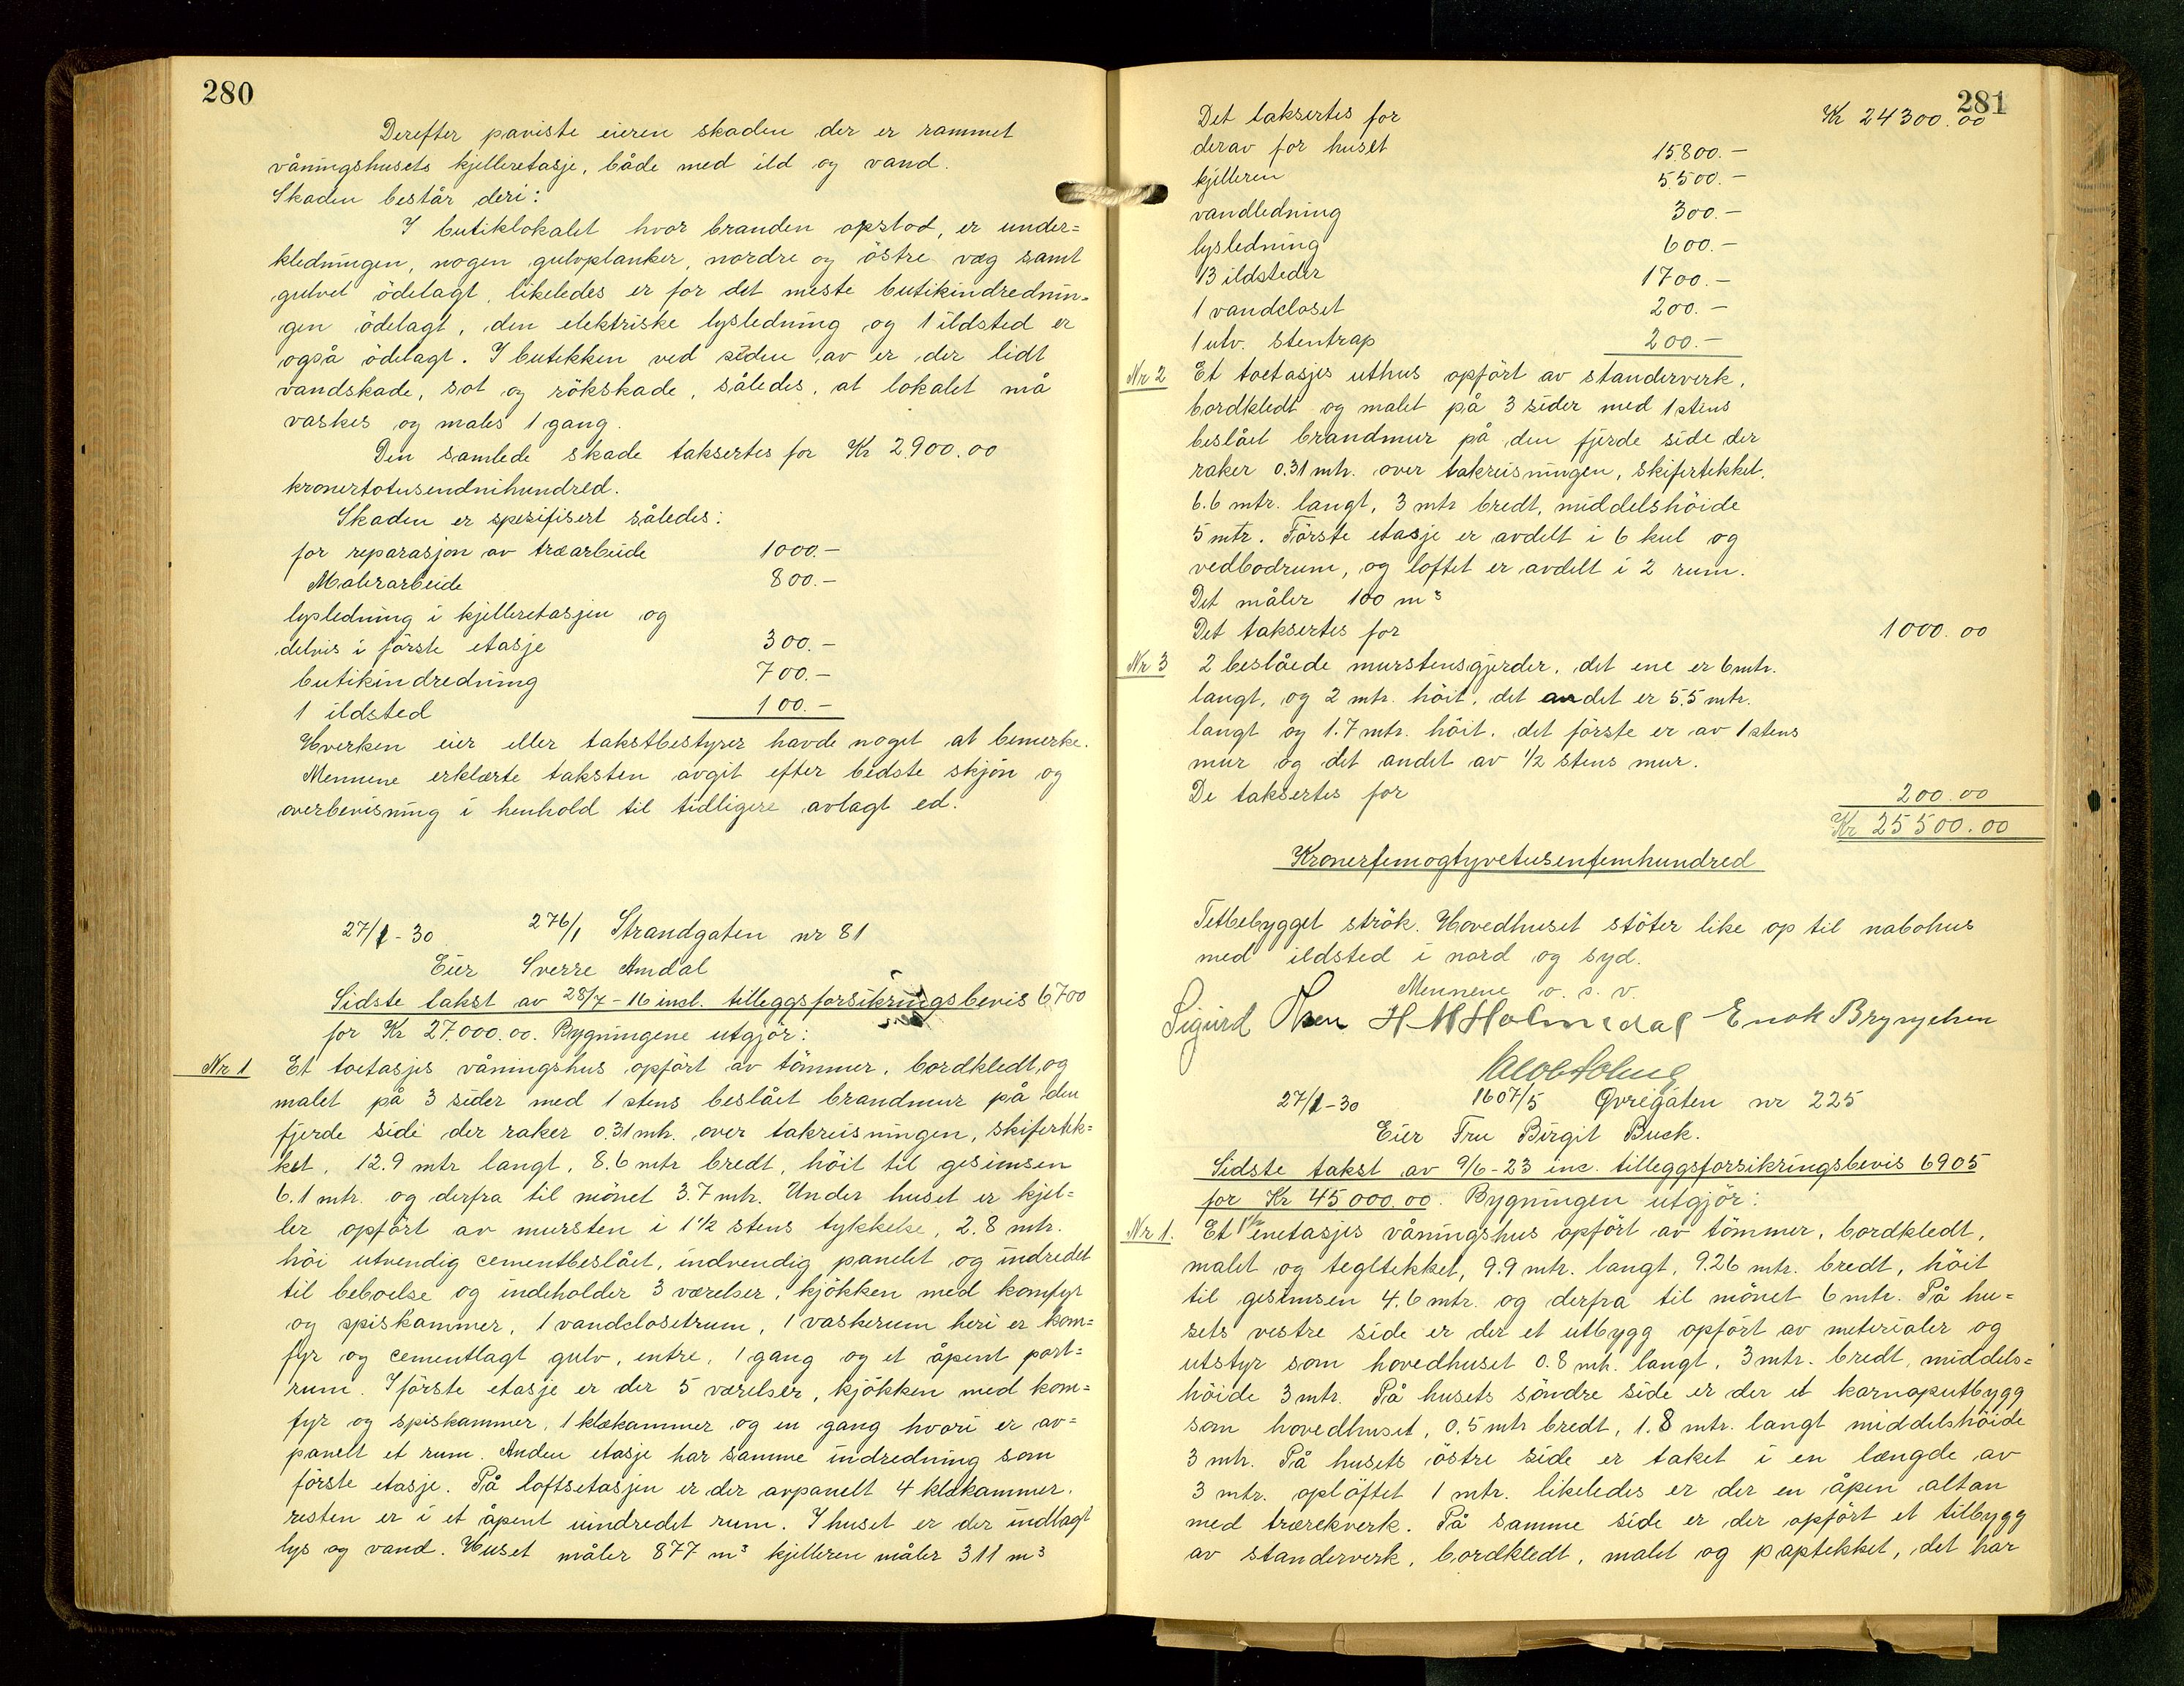 280
Derefter paviste eieren skaden der er rammet
våningshusets kjelleretasje, både med ild og vand.
Skaden består deri:
I butiklokalet hvor branden opstod, er under=
kledningen, nogen gulvplanker, nordre og östre væg samt
gulvet ödelagt, likeledes er for det meste butikindrednin=
gen ödelagt, den elektriske lysledning og 1 ildsted er
også ödelagt. I butikken ved siden av er der lidt
vandskade, sot og rökskade, således, at lokalet må
vaskes og males 1 gang.
Den samlede skade taksertes for Kr 2900.00
kronertotusendnihundred.
Skaden er spesifisert således:
for reparasjon av træarbeide 1000.-
Malerarbeide 800.-
lysledning i kjelleretasjen og
delvis i förste etasje 300.-
butikindredning 700.-
1 ildsted 100.-
Hverken eier eller takstbestyrer havde noget at bemerke.
Mennene erklærte taksten avgit efter bedste skjön og
overbevisning i henhold til tidligere avlagt ed.
27/1-30 276/1 Strandgaten nr 81
Eier Sverre Amdal
Sidste takst av 28/7-16 incl. tilleggsforsikringsbevis 6700
for Kr 27.000.00. Bygningene utgjör:
Nr 1 Et toetasjes våningshus opfört av tömmer, bordkledt, og
malet på 3 sider med 1 stens beslået brandmur på den
fjerde side der raker 0.31 mtr. over takreisningen, skifertek=
ket, 12.9 mtr langt, 8.6 mtr bredt, höit til gesimsen
6.1 mtr. og derfra til mönet 3.7 mtr. Under huset er kjel=
ler opfört av mursten i 1½ stens tykkelse, 2.8 mtr.
höi utvendig cementbeslået, indvendig panelet og indredet
til beboelse og indeholder 3 værelser, kjökken med komfyr
og spiskammer, 1 vandclosetrum, 1 vaskerum heri er kom=
fyr og cementlagt gulv, entre, 1 gang og et åpent port=
rum. I förste etasje er der 5 værelser, kjökken med kom=
fyr og spiskammer, 1 klækammer og en gang hvori er av=
panelt et rum. Anden etasje har samme indredning som
förste etasje. På loftsetasjen er der avpanelt 4 klækammer,
resten er i et åpent uindredet rum. I huset er der indlagt
lys og vand. Huset måler 877 m³ kjelleren måler 311 m³
281
Det taksertes for Kr 24300.00
derav for huset 15800.-
kjelleren 5500.-
vandledning 300.-
lysledning 600.-
13 ildsteder 1700.-
1 vandcloset 200.-
1 utv. stentrap 200.-
Nr 2 Et toetasjes uthus opfört av standerverk,
bordkledt og malet på 3 sider med 1 stens
beslået brandmur på den fjerde side der
raker 0.31 mtr. over takreisningen, skifertekket,
6.6 mtr. langt, 3 mtr bredt, middelshöide
5 mtr. Förste etasje er avdelt i 6 kul og
vedbodrum, og loftet er avdelt i 2 rum.
Det måler 100 m³
Det taksertes for 1000.00
Nr 3 2 beslåede murstensgjerder, det ene er 6 mtr.
langt, og 2 mtr. höit, det andet er 5.5 mtr.
langt og 1.7 mtr. höit, det förste er av 1 stens
mur og det andet av ½ stens mur.
De taksertes for 200.00
Kr 25500.00
Kronerfemogtyvetusenfemhundred
Tetbebygget strök. Hovedhuset stöter like op til nabohus
med ildsted i nord og syd.
Mennene o. s. v.
Sigurd Olsen H M Holmedal Enok Brynjelsen
27/1-30 1607/5 Øvregaten nr 225
Eier Fru Birgit Buck.
Sidste takst av 9/6-23 inc. tilleggsforsikringsbevis 6905
for Kr 45000.00. Bygningen utgjör:
Nr 1. Et 1½ enetasjes våningshus opfört av tömmer, bordkledt,
malet og tegltekket, 9.9 mtr. langt, 9.26 mtr. bredt, höit
til gesimsen 4.6 mtr. og derfra til mönet 6 mtr. På hu=
sets vestre side er der et utbygg opfört av meterialer og
utstyr som hovedhuset 0.8 mtr. langt, 3 mtr. bredt, middels=
höide 3 mtr. På husets söndre side er der et karnaputbygg
som hovedhuset, 0.5 mtr bredt, 1.8 mtr. langt middelshöide
3 mtr. På husets östre side er taket i en længde av
3 mtr. oplöftet 1 mtr. likeledes er der en åpen altan
med trærekverk. På samme side er der opfört et tilbygg
av standerverk, bordkledt, malet og paptekket, det har